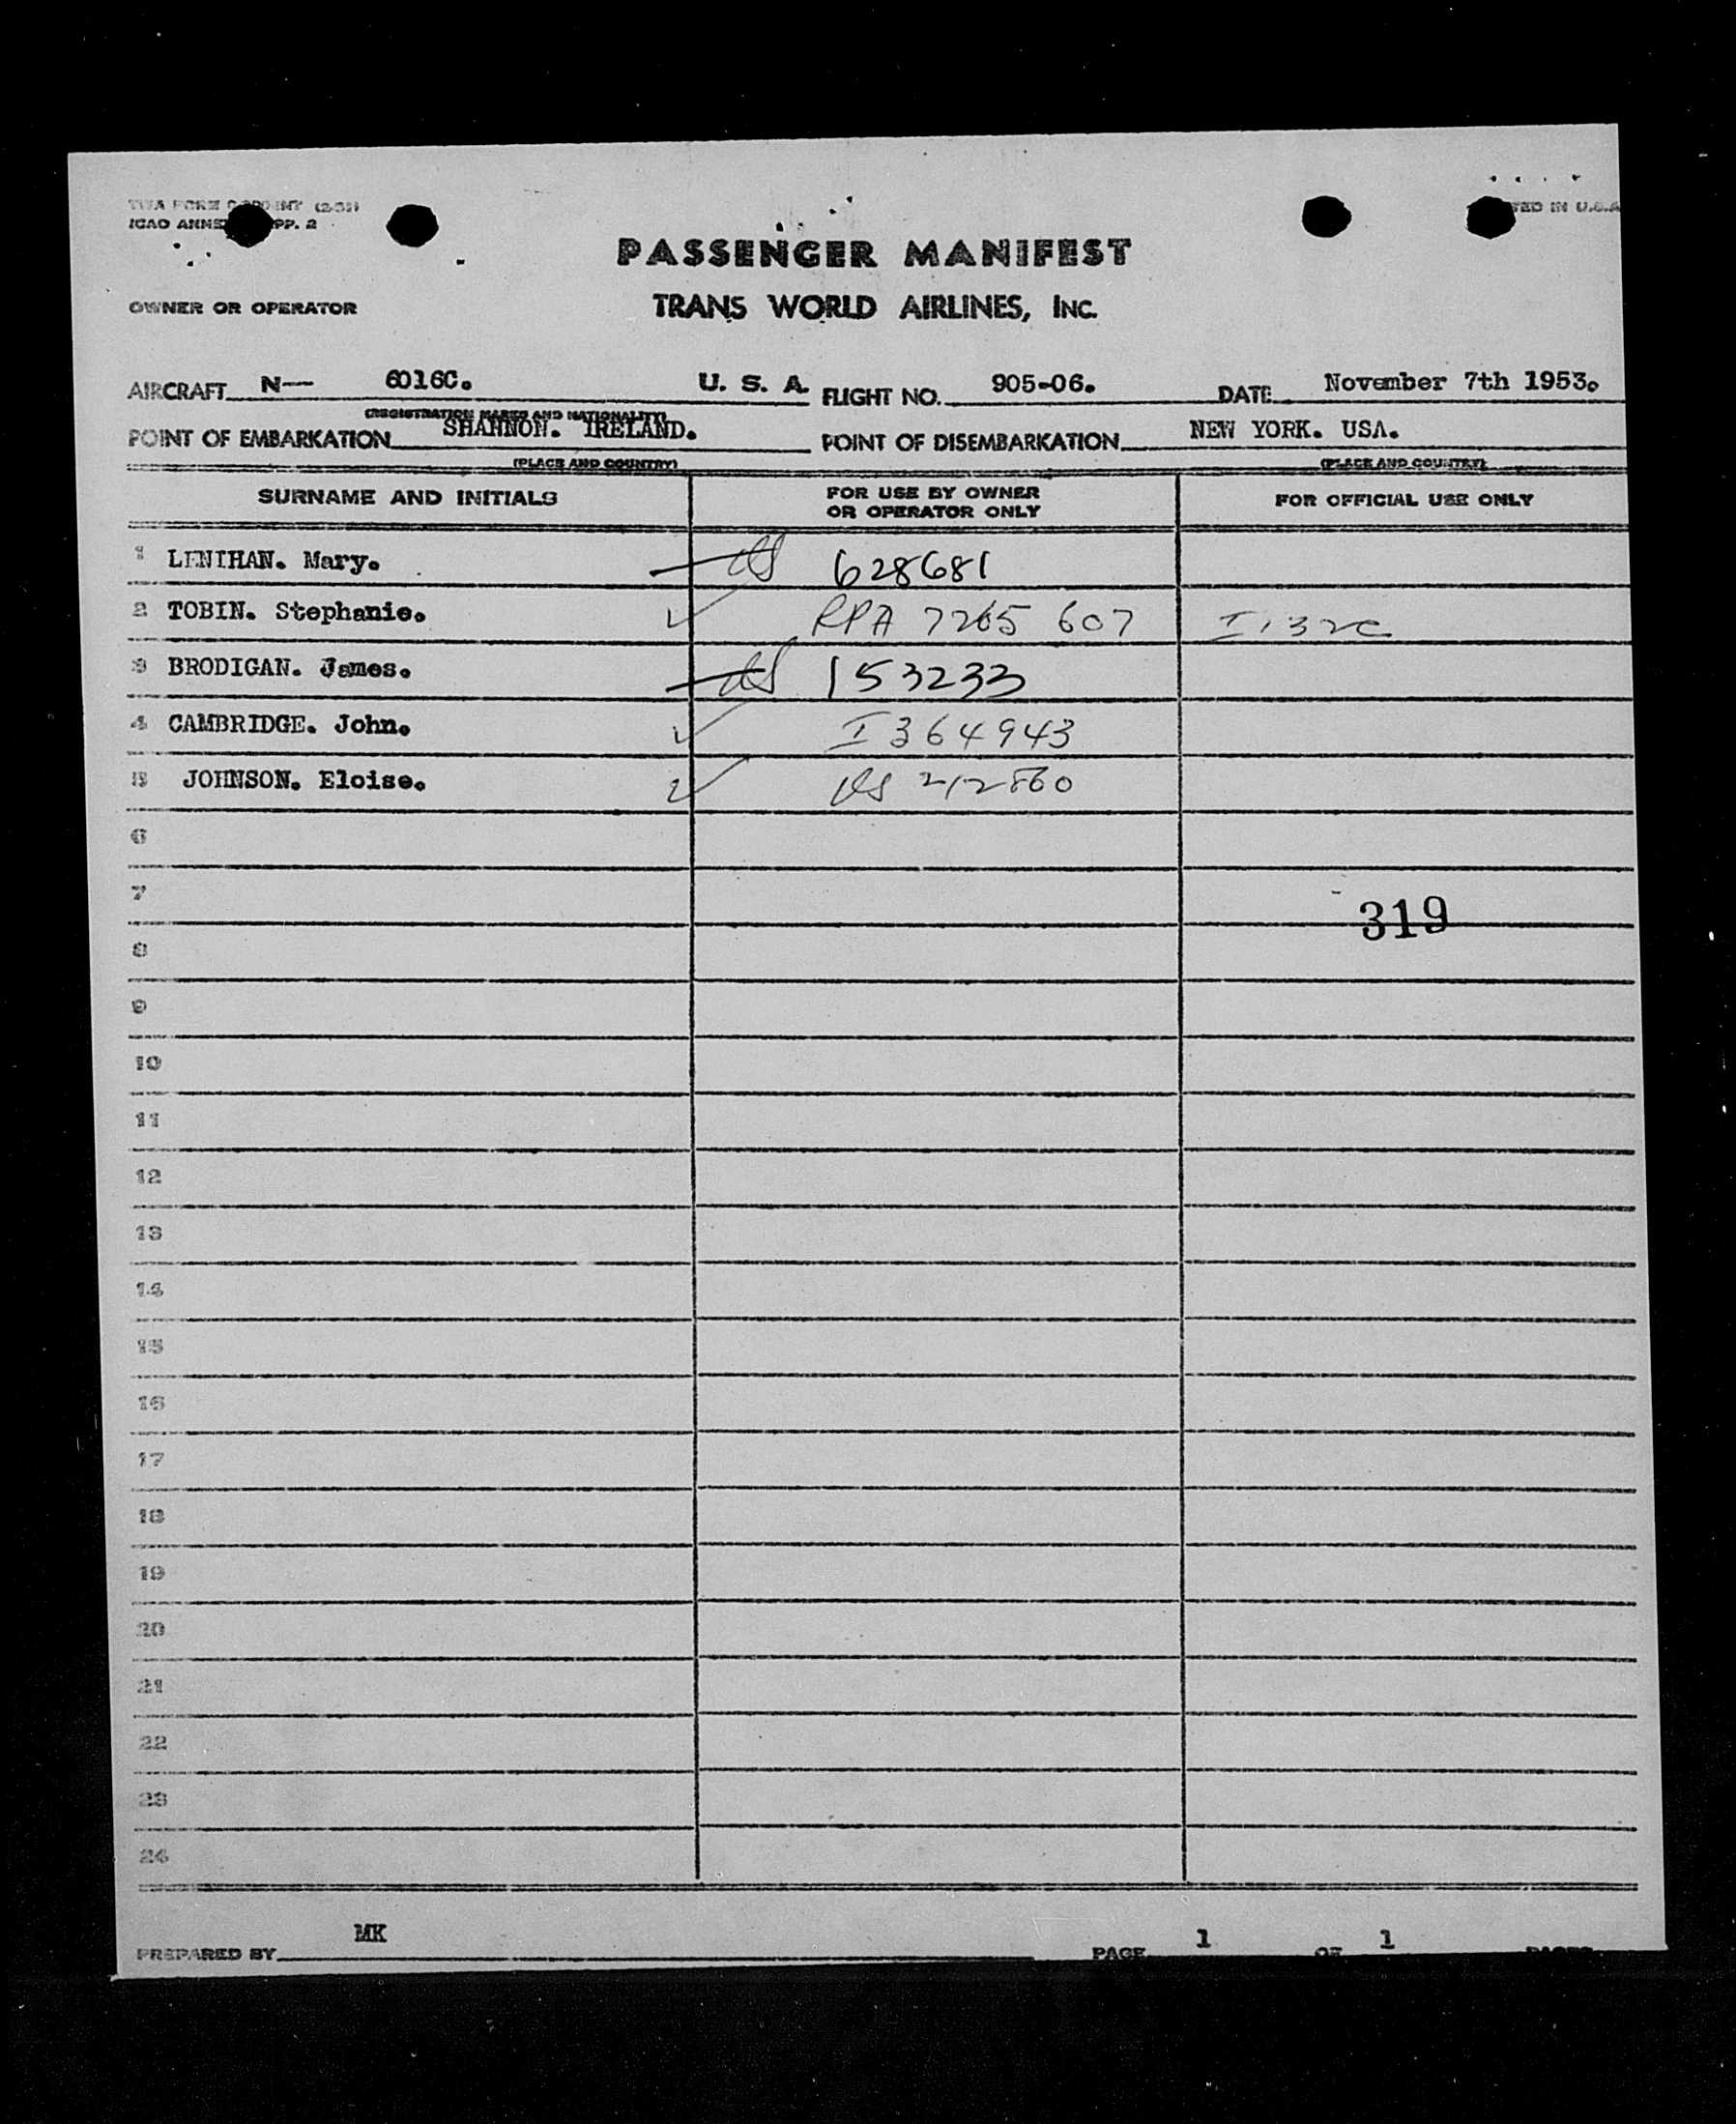 TWA FORM (2-51)
ICAO ANNEX PP. 2
TED IN U.S.A
PASSENGER MANIFEST
OWNER OR OPERATOR TRANS WORLD AIRLINES, INC.
AIRCRAFT N— 6016C. U. S. A. FLIGHT NO. 905-06. DATE November 7th 1953.
(REGISTRATION MARKS AND NATIONALITY)
POINT OF EMBARKATION SHANNON. IRELAND. POINT OF DISEMBARKATION NEW YORK. USA.
(PLACE AND COUNTRY) (PLACE AND COUNTRY)
SURNAME AND INITIALS FOR USE BY OWNER OR OPERATOR ONLY FOR OFFICIAL USE ONLY
1 LENIHAN. Mary. 628681
2 TOBIN. Stephanie. RPA 7265 607 I 132c
3 BRODIGAN. James. 153233
4 CAMBRIDGE. John. I 364943
5 JOHNSON. Eloise. 212860
6
7
319
8
9
10
11
12
13
14
15
16
17
18
19
20
21
22
23
24
PREPARED BY MK PAGE 1 OF 1 PAGES